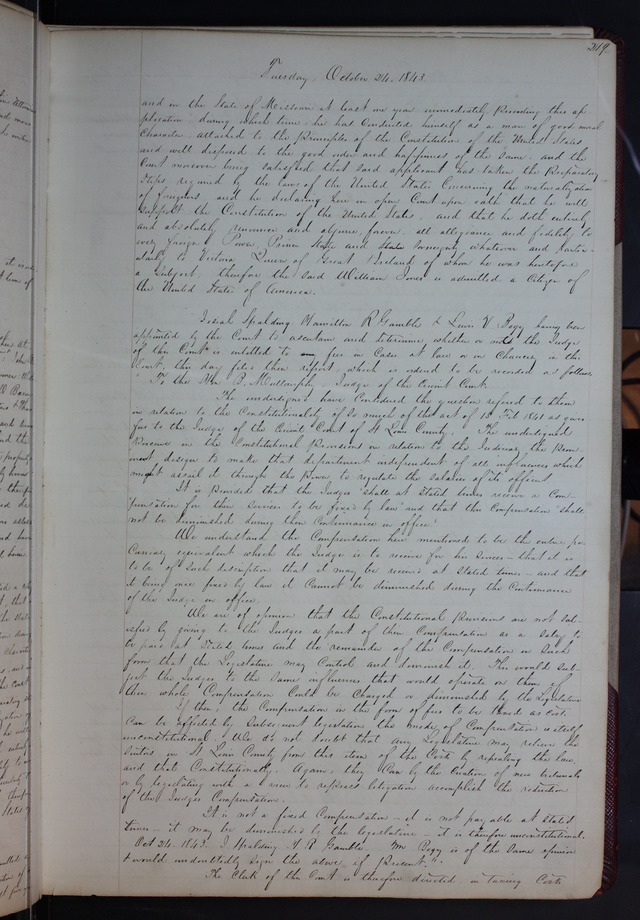 249
Tuesday, October 24, 1843
and in the State of Missouri at least one year immediately Preceding this ap-
plication during which time he has conducted himself as a man of good moral
Character attached to the Principles of the Constitution of the United States
and well disposed to the good order and happiness of the same, and the
Court moreover being satisfied that said applicant has taken the Preparatory
Steps required by the laws of the United States Concerning the naturalization
of foreigners, and he declaring here in open Court upon oath that he will
Support the Constitution of the United States, and that he doth entirely
and absolutely renounce and abjure, forever, all allegiance and fidelity to
every foreign Power, Prince State and Sovereignty whatever and Partic-
ularly to Victoria Queen of Great Britain of whom he was heretofore
a Subject. therefore the said William Jones is admitted a Citizen of
the United States of America.
Josiah Spalding Hamilton R Gamble & Lewis V Bogy having been
appointed by the Court to ascertain and determine whether or not the Judge
of this Court is entitled to any fees in Cases at law or in Chancery in this
Court, this day files their report, which is ordered to be recorded as follows
"To the Hon B. Mullanphy Judge of the Circuit Court.
The undersigned have Considered the question refered to them
in relation to the Constitutionality of so much of the act of 15 Feb 1841 as gives
fees to the Judge of the Circuit Court of St Louis County. The undersigned
Perceive in the Constitutional Provisions in relation to the Judiciary the Prom-
inent design to make that department independent of all influences which
might assail it through the Power to regulate the salaries of its officers
It is Provided that the Judges "shall at Stated times receive a Com-
pensation for their Services to be fixed by law" and that the Compensation "shall
not be diminished during their Continuance in office."
We understand the Compensation here mentioned to be the entire pe-
cuniary equivalent which the Judge is to receive for his Services - that it is
to be of such description that it may be received at Stated times - and that
it being once fixed by law it Cannot be diminished during the Continuance
of the Judge in office.
We are of opinion that the Constitutional Provisions are not sat-
isfied by giving to the Judges a part of their Compensation as a Salary to
be paid at Stated times and the remainder of the Compensation in such
form that the Legislature may Control and diminish it. This would sub-
ject the Judges to the same influences that would operate on them if
their whole Compensation Could be Changed or diminished by the Legislature
If then, the Compensation in the form of fees to be taxed as Costs
Can be affected by subsequent legislation the mode of Compensation is itself
unconstitutional. We do not doubt that our Legislature may relieve the
Suitors in St Louis County from this item of the Costs by repealing the law
and that Constitutionally. Again, they Can by the Creation of new tribunals
or by legislating with a view to repress litigation accomplish the reduction
of the Judges Compensation.
It is not a fixed Compensation - it is not payable at Stated
times - it may be diminished by the legislature - it is therefore unconstitutional.
Oct 24. 1843. J. Spalding H. R Gamble Mr Bogy is of the same opinion
& would undoubtedly sign the above if present".
The Clerk of the Court is therefore directed, in taxing Costs